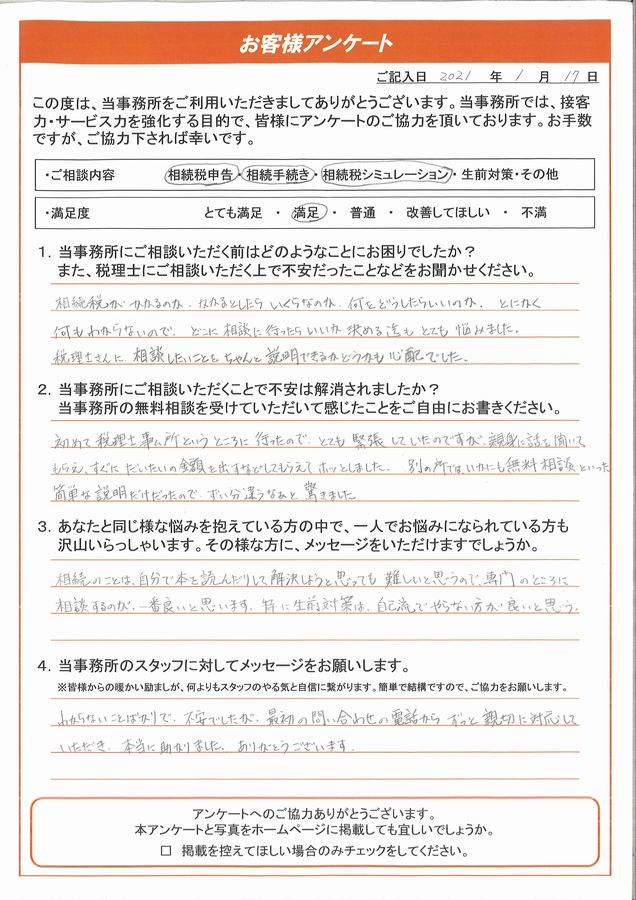 お客様アンケート
ご記入日 2021 年 1 月 17 日
この度は、当事務所をご利用いただきましてありがとうございます。当事務所では、接客
力・サービス力を強化する目的で、皆様にアンケートのご協力を頂いております。お手数
ですが、ご協力下されば幸いです。
・ご相談内容 相続税申告・相続手続き・相続税シミュレーション・生前対策・その他
・満足度 とても満足 ・ 満足 ・ 普通 ・ 改善してほしい ・ 不満
1. 当事務所にご相談いただく前はどのようなことにお困りでしたか？
また、税理士にご相談いただく上で不安だったことなどをお聞かせください。
相続税がかかるのか、かかるとしたらいくらなのか、何をどうしたらいいのか、とにかく
何もわからないので、どこに相談に行ったらいいか決める迄もとても悩みました。
税理士さんに、相談したいことをちゃんと説明できるかどうかも心配でした。
2. 当事務所にご相談いただくことで不安は解消されましたか？
当事務所の無料相談を受けていただいて感じたことをご自由にお書きください。
初めて税理士事ム所というところに行ったので、とても緊張していたのですが、親身に話を聞いて
もらえ、すぐにだいたいの金額を出すなどしてもらえてホッとしました。別の所では、いかにも無料相談といった
簡単な説明だけだったので、ずい分違うなぁと驚きました
3. あなたと同じ様な悩みを抱えている方の中で、一人でお悩みになられている方も
沢山いらっしゃいます。その様な方に、メッセージをいただけますでしょうか。
相続のことは、自分で本を読んだりして解決しようと思っても難しいと思うので、専門のところに
相談するのが、一番良いと思います。特に生前対策は、自己流でやらない方が良いと思う。
4. 当事務所のスタッフに対してメッセージをお願いします。
※皆様からの暖かい励ましが、何よりもスタッフのやる気と自信に繋がります。簡単で結構ですので、ご協力をお願いします。
わからないことばかりで、不安でしたが、最初の問い合わせの電話からずっと親切に対応して
いただき、本当に助かりました。ありがとうございます。
アンケートへのご協力ありがとうございます。
本アンケートと写真をホームページに掲載しても宜しいでしょうか。
□ 掲載を控えてほしい場合のみチェックをしてください。